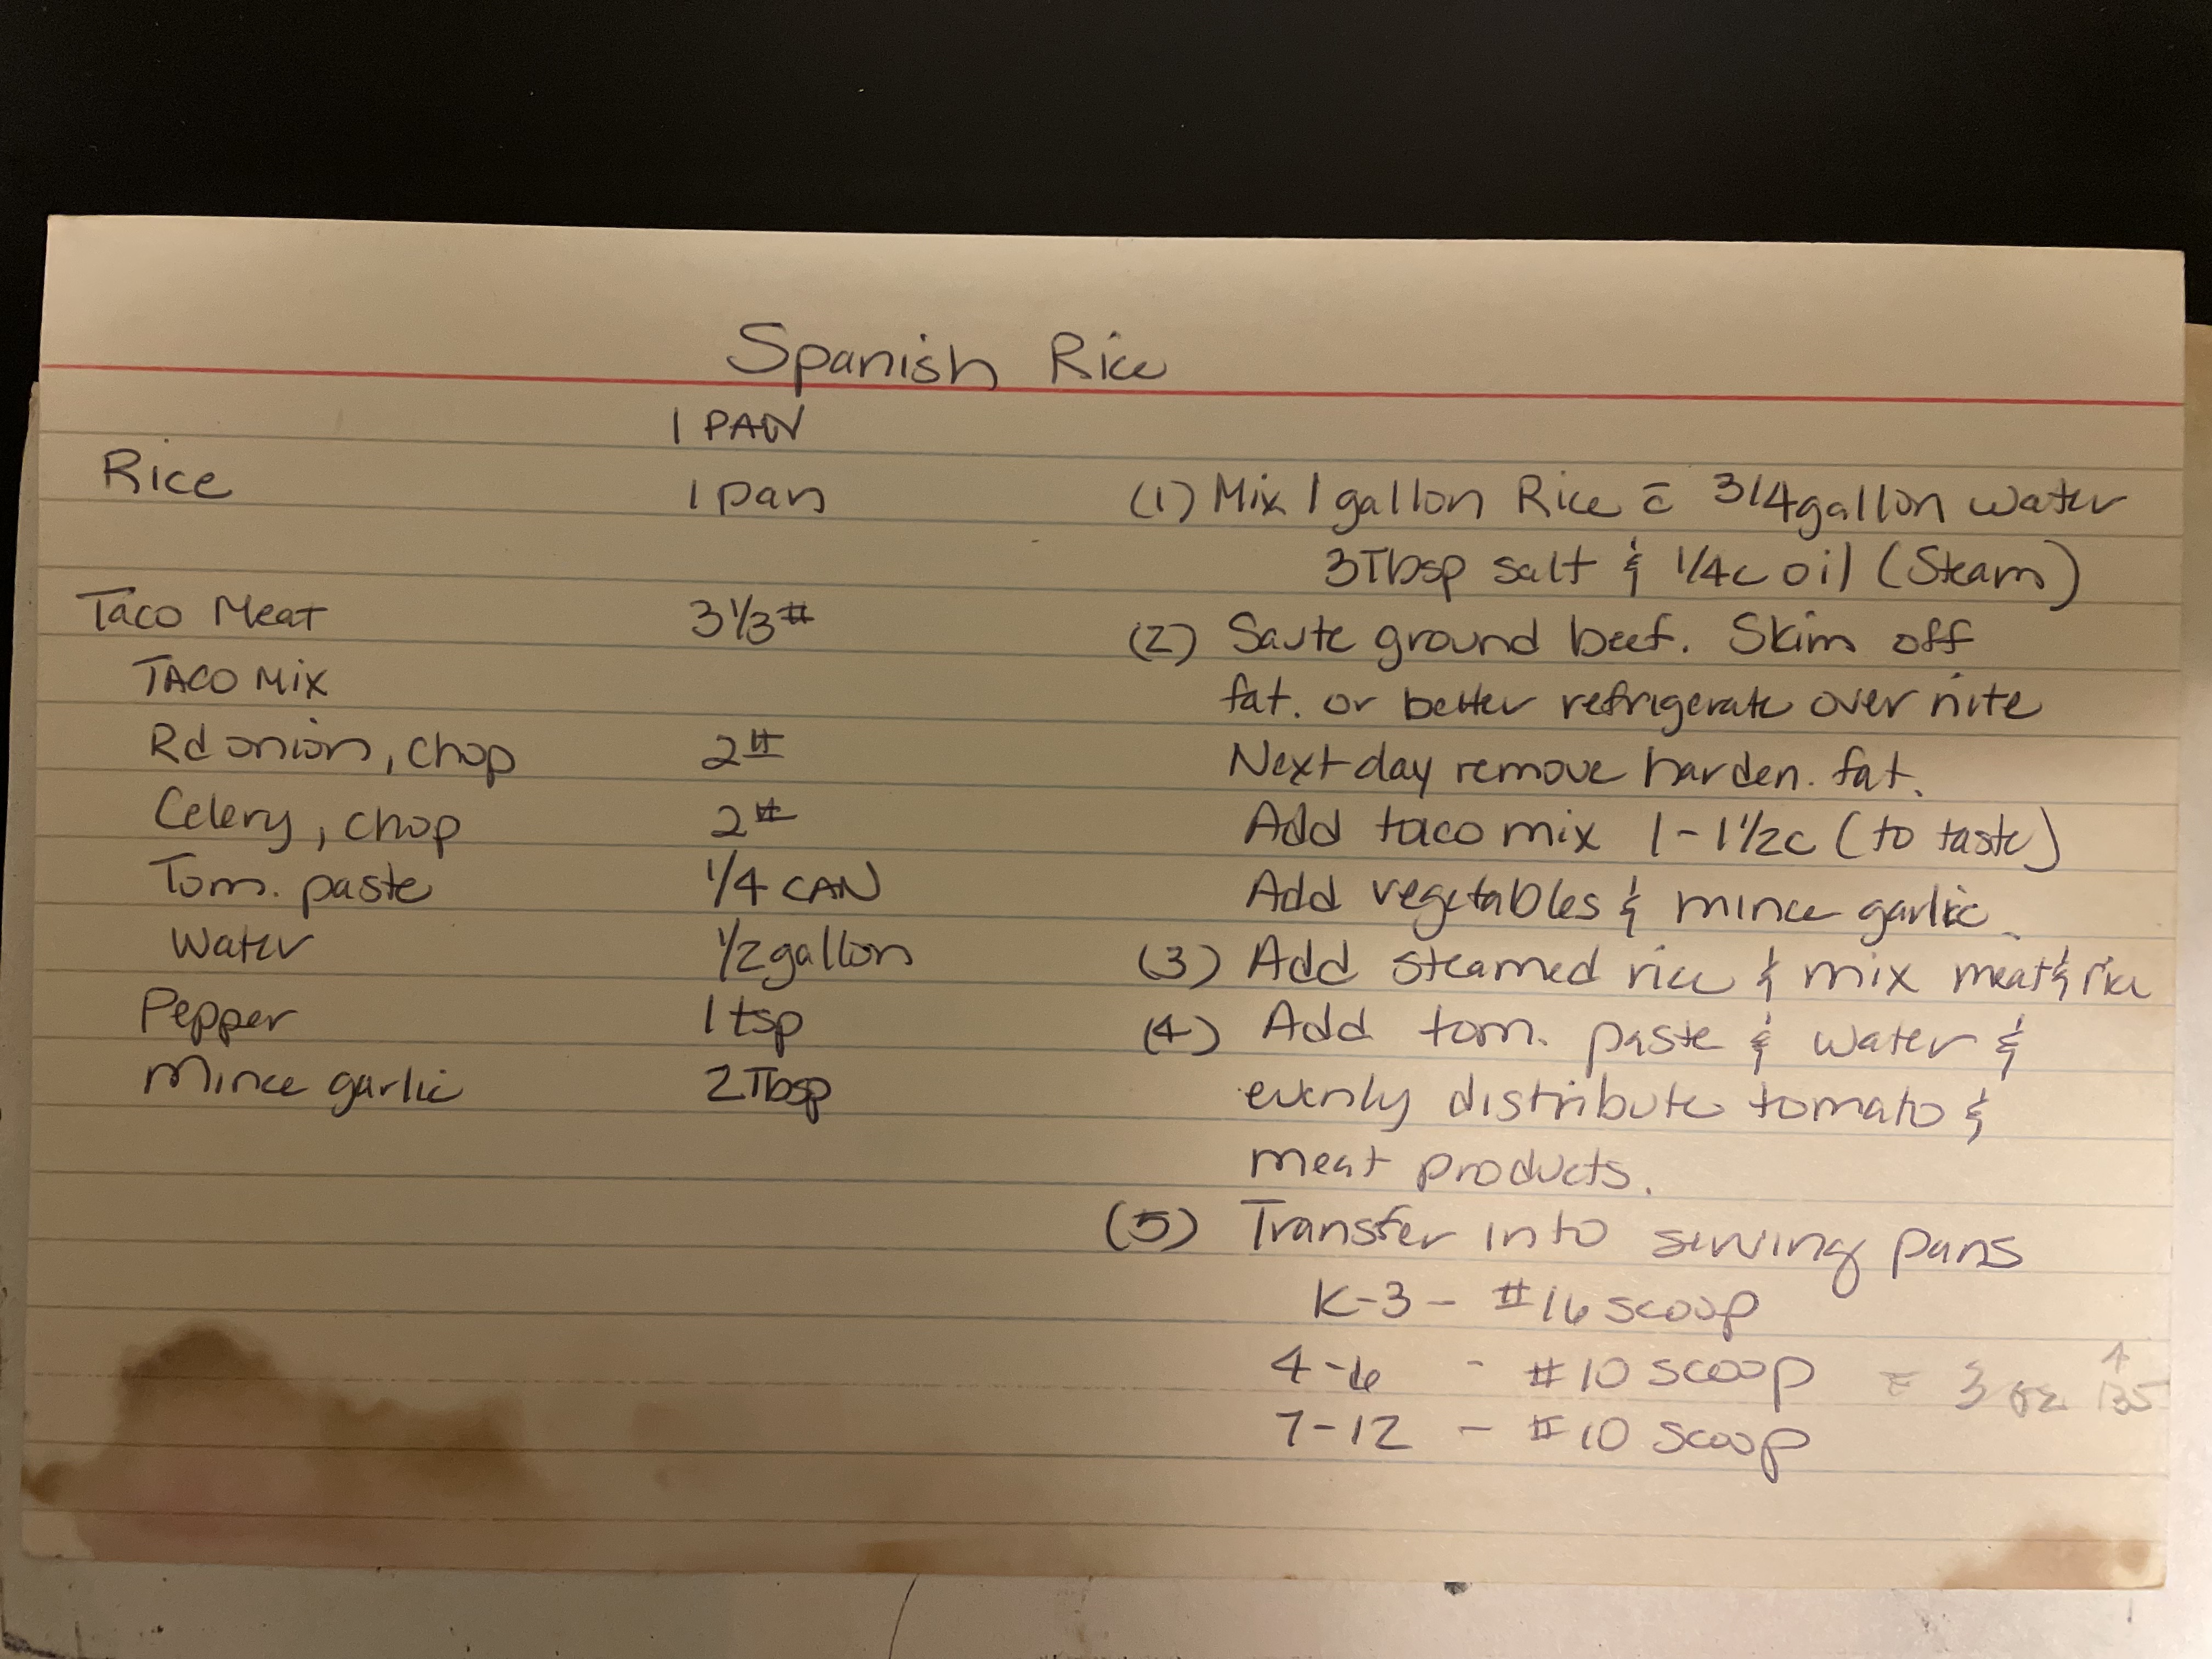 Spanish Rice
1 PAN
Rice 1 pan
Taco Meat 3 1/3#
TACO Mix
Rd onion, chop 2#
Celery, chop 2#
Tom. paste 1/4 CAN
Water 1/2 gallon
Pepper 1 tsp
Mince garlic 2 Tbsp
(1) Mix 1 gallon Rice c̄ 3/4 gallon water
3 Tbsp salt & 1/4c oil (Steam)
(2) Saute ground beef. Skim off
fat. or better refrigerate over nite
Next day remove harden. fat.
Add taco mix 1 - 1 1/2c (to taste)
Add vegetables & mince garlic.
(3) Add steamed rice & mix meat & rice
(4) Add tom. paste & water &
evenly distribute tomato &
meat products.
(5) Transfer into serving pans
K-3 - #16 scoop
4-6 - #10 scoop = 3 oz
7-12 - #10 scoop